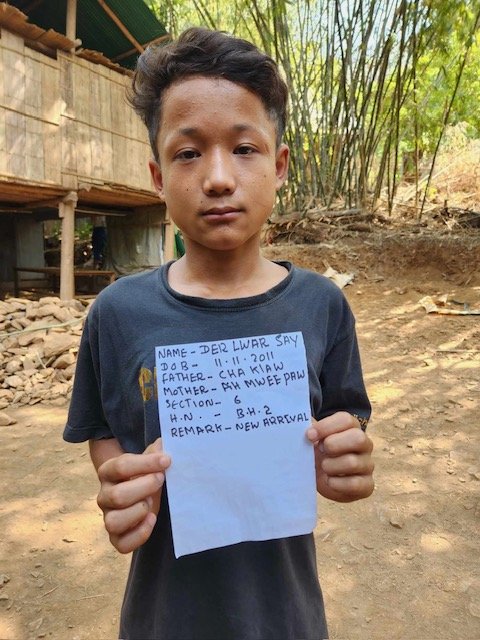 NAME - DER LWAR SAY
DOB - 11.11.2011
FATHER - CHA KLAW
MOTHER - PAH MWEE PAW
SECTION - 6
H.N. - B.H.2
REMARK - NEW ARRIVAL